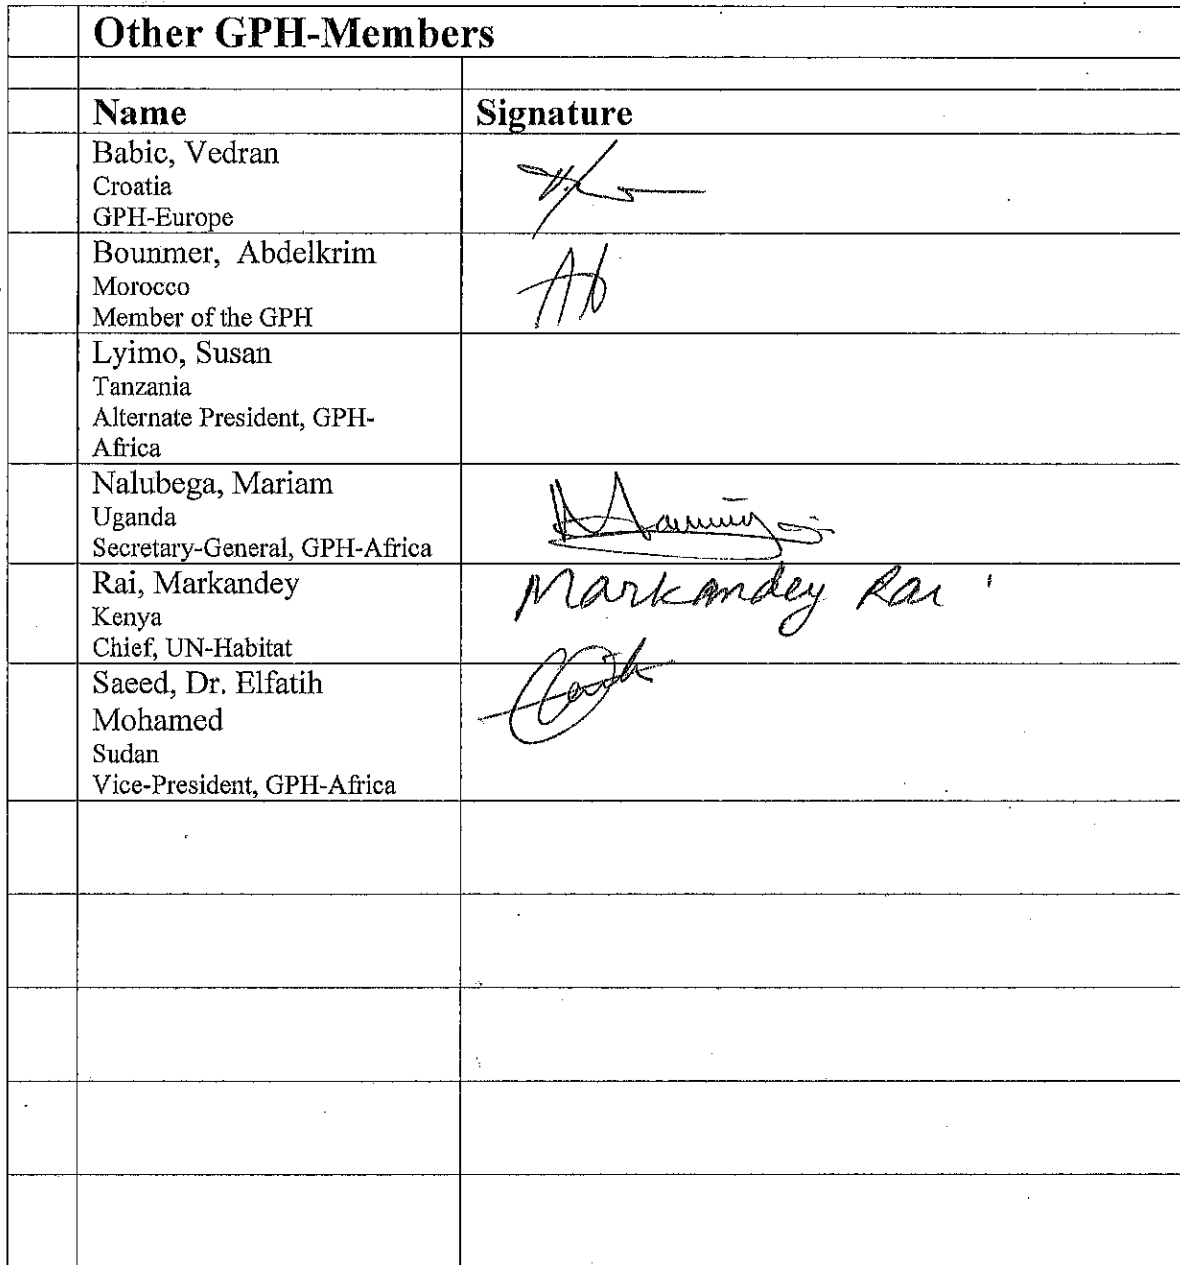 Other GPH-Members
Name Signature
Babic, Vedran
Croatia
GPH-Europe
Bounmer, Abdelkrim
Morocco
Member of the GPH
Lyimo, Susan
Tanzania
Alternate President, GPH-
Africa
Nalubega, Mariam
Uganda
Secretary-General, GPH-Africa
Rai, Markandey
Kenya
Chief, UN-Habitat
Markandey Rai
Saeed, Dr. Elfatih
Mohamed
Sudan
Vice-President, GPH-Africa